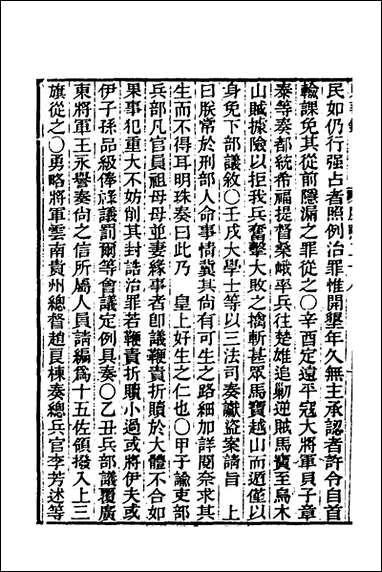 民如仍行強占者照例治罪惟開墾年久無主承認者許令自首
輸課免其從前隱漏之罪從之〇辛酉定遠平寇大將軍貝子章
泰等奏都統希福提督桑峨平兵往楚雄追勦逆賊馬寶至烏木
山賊據險以拒我兵奮擊大敗之擒斬甚眾馬寶越山而遁僅以
身免下部議敘〇壬戌大學士等以三法司奏讞盜案請旨 上
曰朕常於刑部人命事情冀其尚有可生之路細加詳閱奈求其
生而不得耳明珠奏曰此乃 皇上好生之仁也〇甲子諭吏部
兵部凡官員祖母母並妻緣事者卽議鞭責折贖於大體不合如
果事犯重大不妨削其封誥治罪若鞭責折贖小過或將伊夫或
伊子孫品級俸祿議罰爾等會議定例具奏〇乙丑兵部議覆廣
東將軍王永譽奏尚之信所屬人員請編為十五佐領撥入上三
旗從之〇勇略將軍雲南貴州總督趙良棟奏總兵官李芳述等